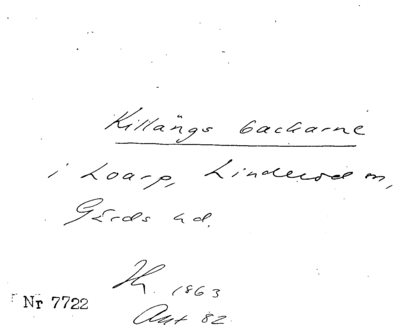 Killängs backarne
i Loarp, Linderöd sn,
Gärds hd.
1863
Ant 82
Nr 7722